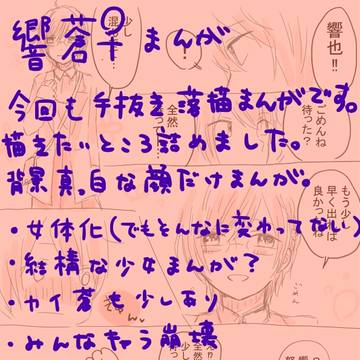 響蒼♀まんが
今回も手抜き落描まんがです。
描きたいところ詰めました。
背景真っ白な顔だけまんが。
・女体化(でもそんなに変わってない)
・結構な少女まんが?
・カイ蒼も少しあり
・みんなキャラ崩壊
響也!!
ごめんね
待った?
全然
もう少し
早く出れば
良かったね
少し